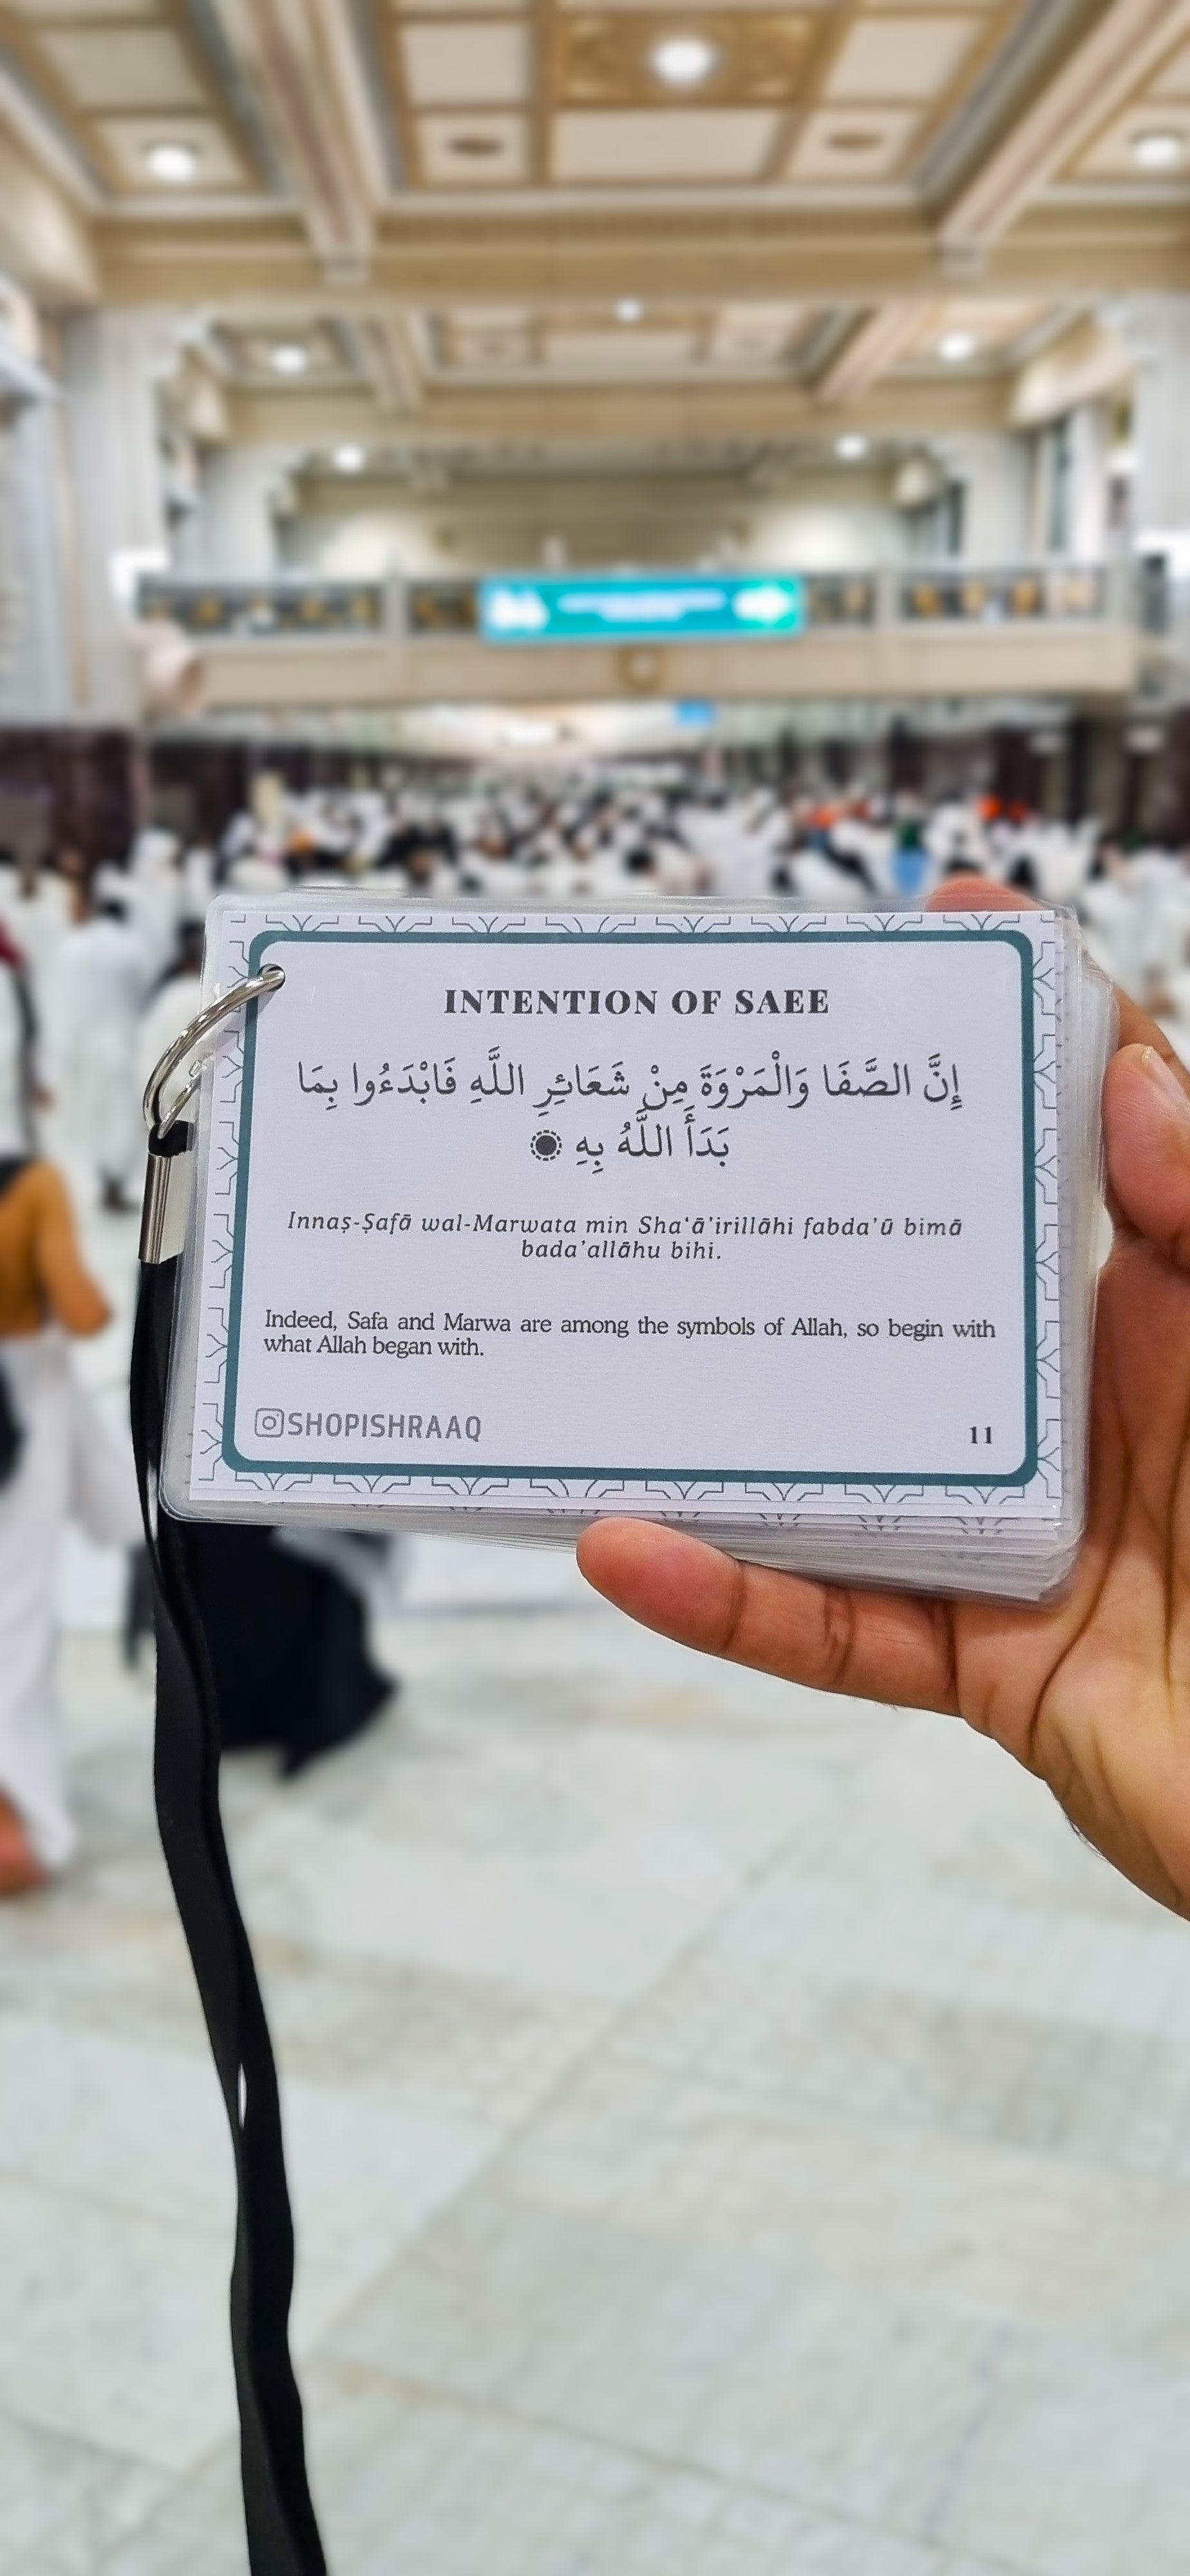 INTENTION OF SAEE
إِنَّ الصَّفَا وَالْمَرْوَةَ مِنْ شَعَائِرِ اللَّهِ فَابْدَءُوا بِمَا
بَدَأَ اللَّهُ بِهِ
Innaṣ-Ṣafā wal-Marwata min Sha‘ā’irillāhi fabda’ū bimā
bada’allāhu bihi.
Indeed, Safa and Marwa are among the symbols of Allah, so begin with
what Allah began with.
SHOPISHRAAQ
11